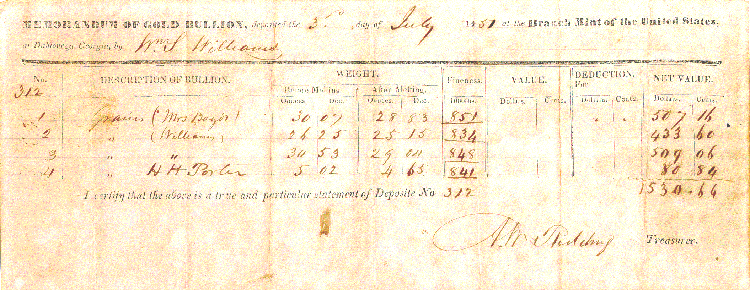 MEMORANDUM OF GOLD BULLION, deposited the 3rd day of July 1851 at the Branch Mint of the United States,
at Dahlonega, Georgia, by Wm. S. Williams
No. DESCRIPTION OF BULLION. WEIGHT. Fineness. VALUE. DEDUCTION. NET VALUE.
For
Before Melting After Melting.
312 Ounces Dec. Ounces. Dec. Thous. Dollars. Cents. Dollars. Cents. Dollars. Cents.
1 Grains (Mrs Boyd) 30 07 28 83 851 507 16
2 " (Williams) 26 25 25 15 834 433 60
3 " " 30 53 29 04 848 509 06
4 " H H Porter 5 02 4 65 841 80 84
I certify that the above is a true and particular statement of Deposite No 312 1530.66
Treasurer.